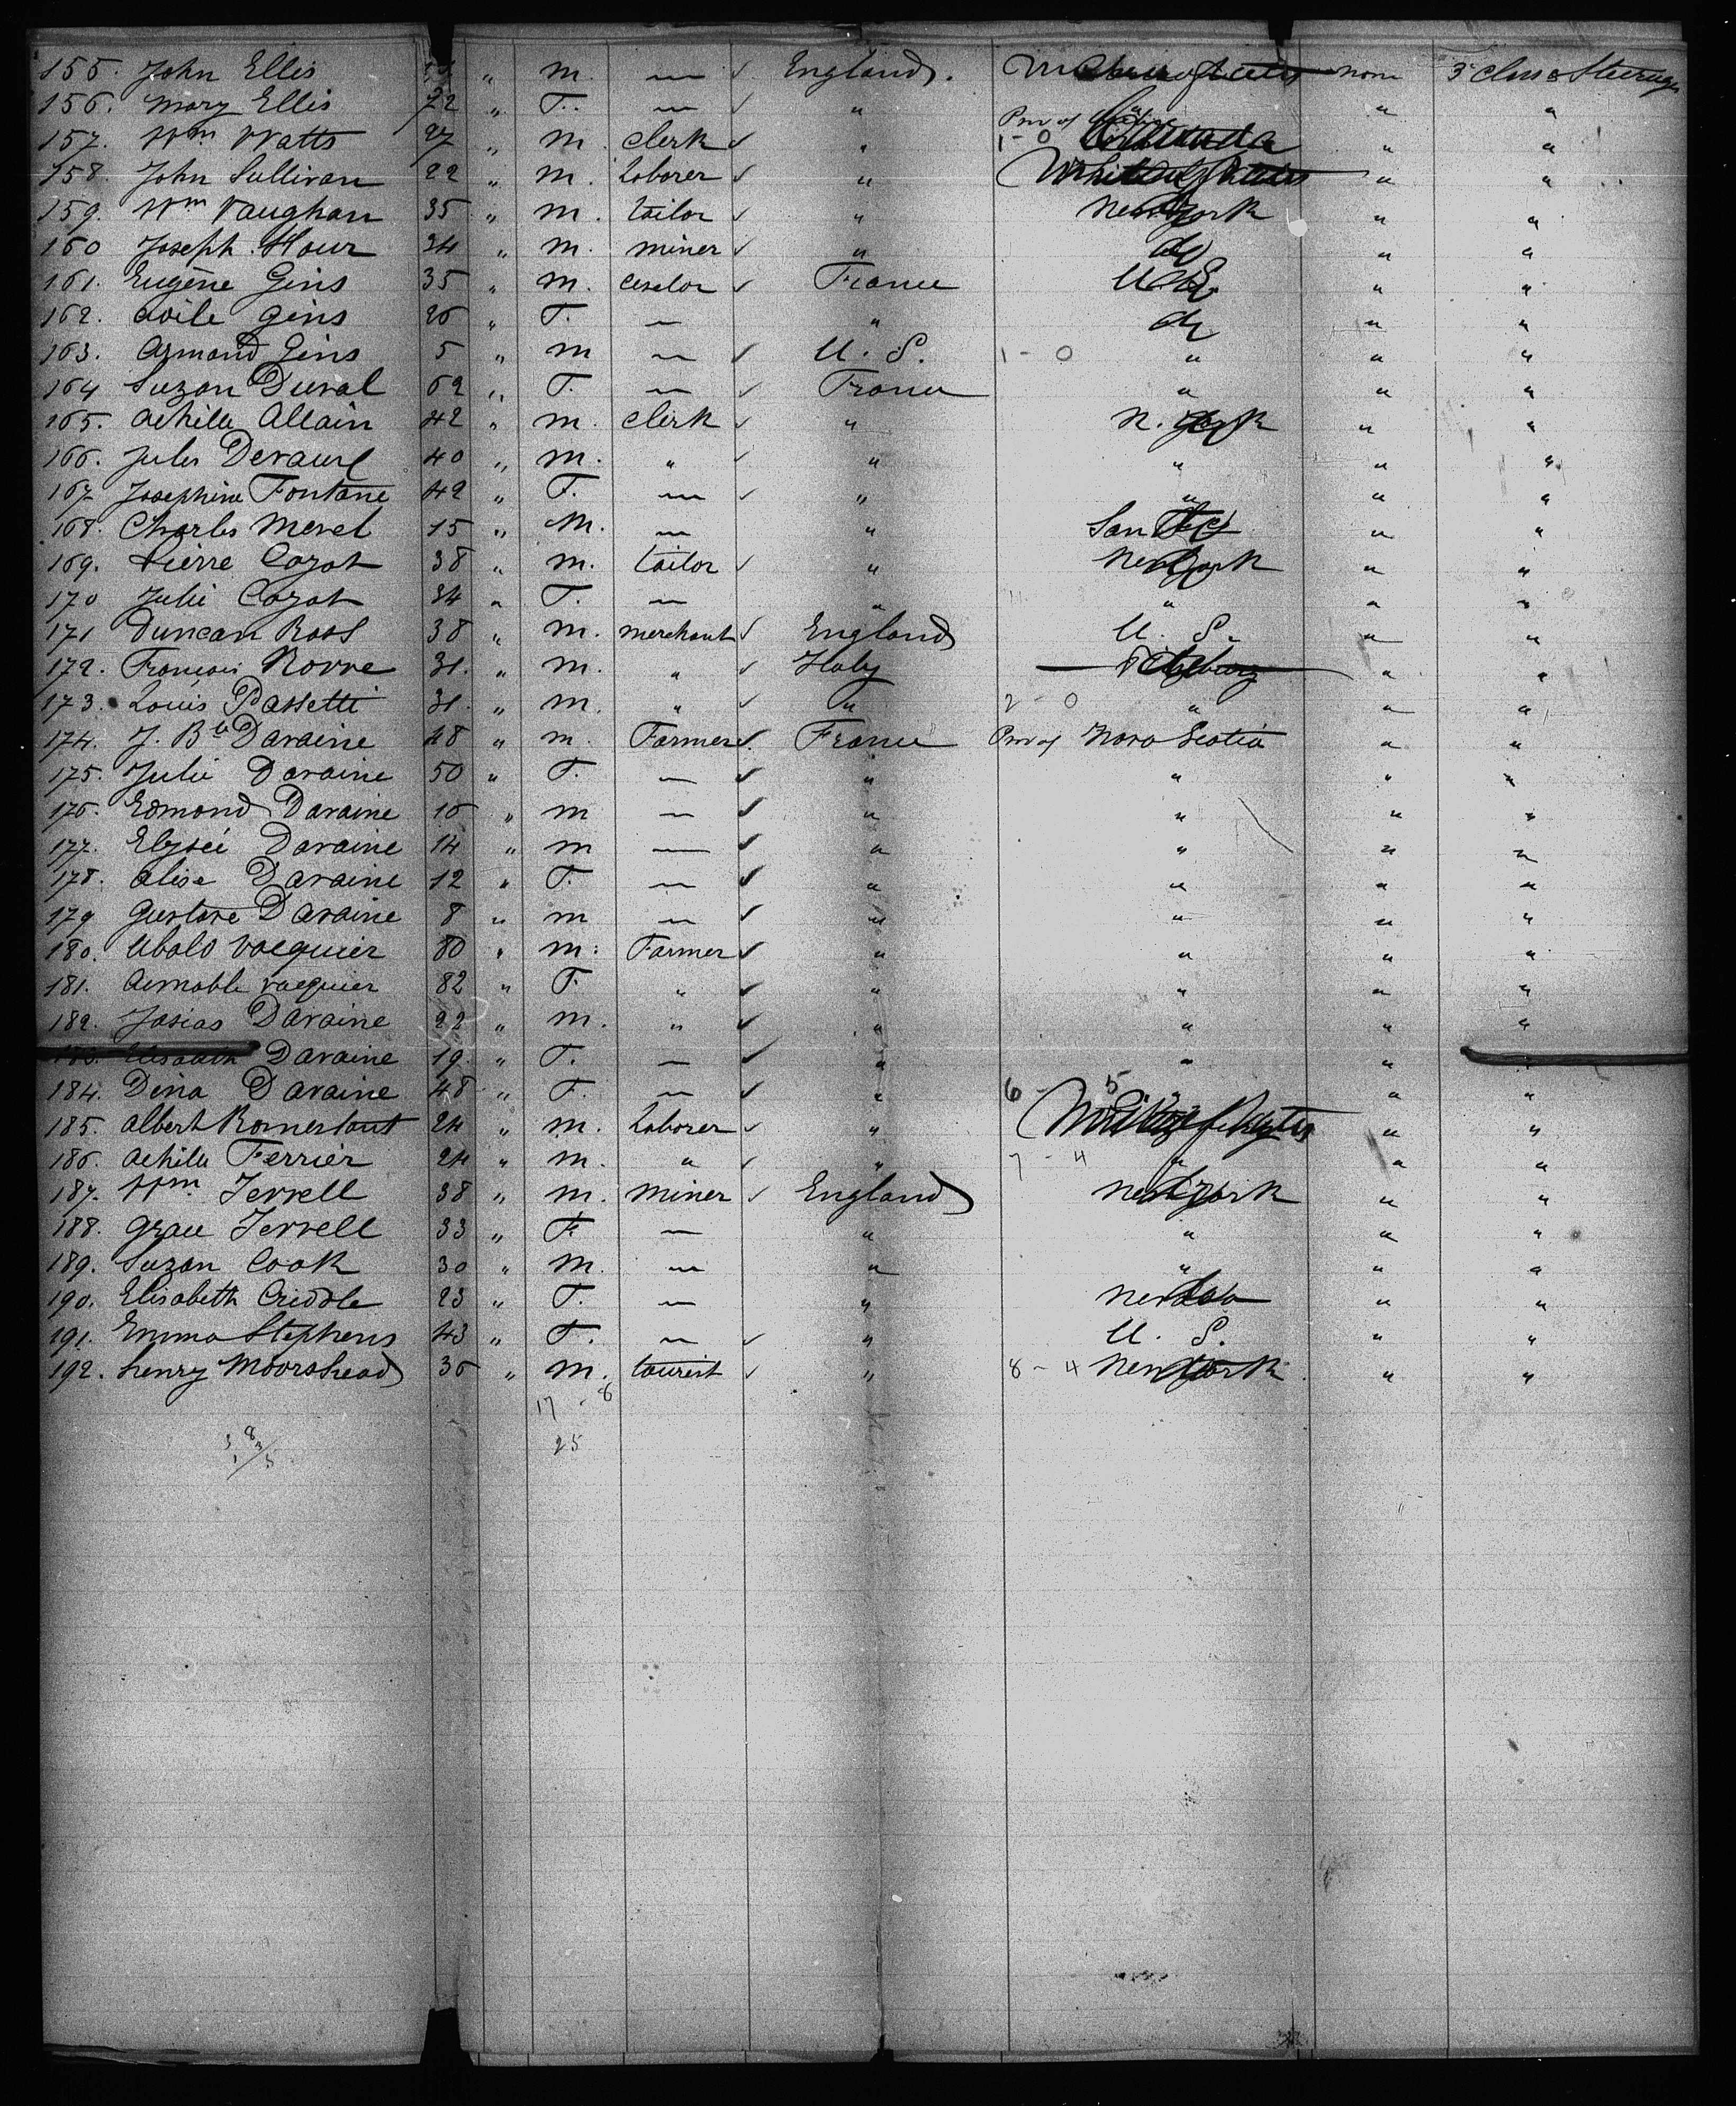 155. John Ellis " m. — ✓ England. none 3 class Steerage
156. Mary Ellis 22 " F. — ✓ " " "
Prov of
157. Wm Watts 27 " m. clerk ✓ " 1-0 Canada " "
158. John Sullivan 22 " m. Laborer ✓ " United States " "
159. Wm Vaughan 35 " m. tailor ✓ " New York " "
160 Joseph Hour 24 " m. miner ✓ " do " "
161. Eugène Gins 35 " m. ✓ France U.S. " "
162. Gins 26 " F. — " do " "
163. Armand Gins 5 " m — ✓ U. S. 1-0 " " "
164 Suzan Duval 62 " F. — ✓ France " " "
165. Achille Allain 42 " m. clerk ✓ " N. York " "
166. Jules 40 " m. " ✓ " " " "
167 Josephine Fontane 42 " F. — ✓ " " " "
168. Charles Merel 15 " M. — " San " "
169. Pierre Cozot 38 " m. tailor ✓ " New York " "
170 Julie Cozot 34 " F. — " " " "
171 Duncan Ross 38 " m. merchant ✓ England U. S. " "
172. François Rovre 31. " m. " ✓ Italy " "
173. Louis Passetti 31. " m. " ✓ " 2-0 " " "
174. J. Bte Davaine 48 " m. Farmer ✓ France Prov of Nova Scotia " "
175. Julie Davaine 50 " F. — ✓ " " " "
176. Edmond Davaine 16 " m — ✓ " " " "
177. Elysée Davaine 14 " m — ✓ " " " "
178. Alise Davaine 12 " F. — ✓ " " " "
179 Gustave Davaine 8 " m — ✓ " " " "
180. Ubald Vacquier 80 " m. Farmer ✓ " " " "
181. Aimable Vacquier 82 " F. " ✓ " " " "
182. Josias Davaine 22 " m. " ✓ " " " "
183. Davaine 19. " F. — ✓ " " " "
184. Dina Davaine 48 " F. — ✓ " 6-5 " " "
185. Albert 24 " m. Laborer ✓ " " "
186. Achille Ferrier 24 " m. " ✓ " 7-4 " " "
187. Wm Jervell 38 " m. miner ✓ England New York " "
188. Grace Jervell 33 " F — " " " "
189. Suzan Cook 30 " M. — " " " "
190. Elisabeth Criddle 23 " F. — " " "
191. Emma Stephens 43 " F. — ✓ " U. S. " "
192. henry Moorshead 36 " m. tourist ✓ " 8-4 New York " "
17 - 8
25